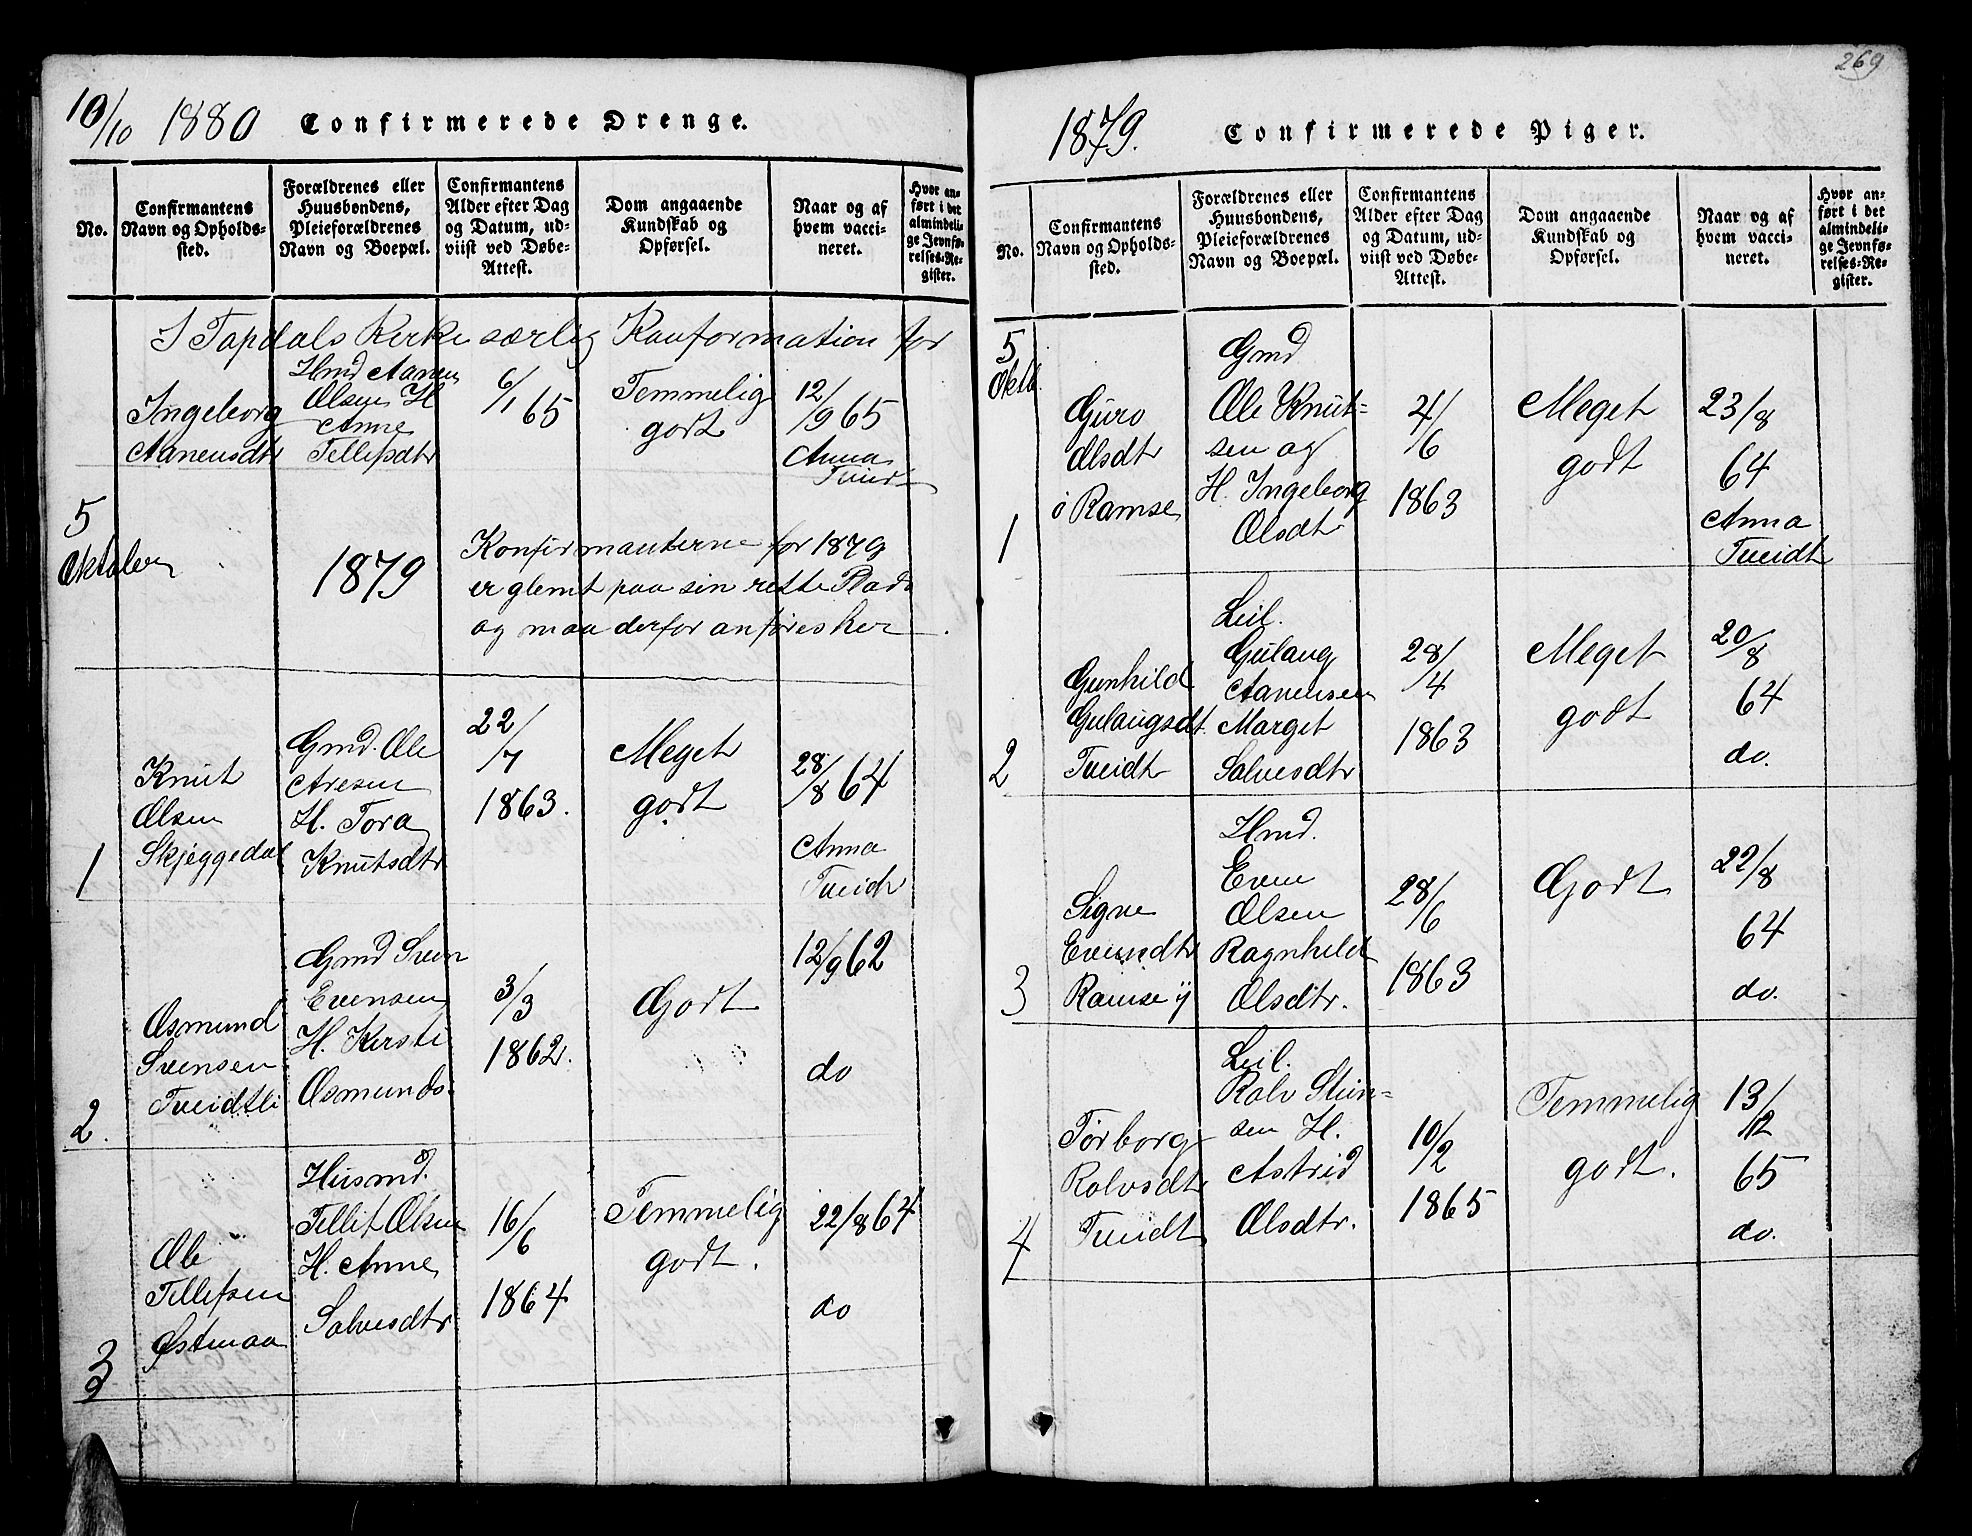 10/10 1880 Confirmerede Drenge.
No.
Confirmantens
Navn og Opholds-
sted.
Forældrenes eller
Huusbondens,
Pleieforældrenes
Navn og Boepæl.
Confirmantens
Alder efter Dag
og Datum, ud-
viist ved Døbe-
Attest.
Dom angaaende
Kundskab og
Opførsel.
Naar og af
hvem vacci-
neret.
Hvor an-
ført i det
almindeli-
ge Jevnfø-
relses-Re-
gister.
I Tapdals Kirke særlig Konformation for
Ingeborg
Aanensdtr
Hmd Aanen
Olsen H
Anne
Tellefsdtr
6/1 65
Temmelig
godt
12/9 65
Anna
5
Oktober
1879
Konfirmanterne for 1879
er glemt paa sin rette Plads
og maa derfor anføres her.
1
Knut
Olsen
Skjeggedal
Gmd. Ole
Aresen
H. Tora
Knutsdtr
22/7
1863.
Meget
godt
28/8 64
Anna
Tveidt
2.
Osmund
Svensen
Tveidtli
Gmd Sven
Evensen
H. Kirsti
Osmunds.
3/3
1862.
Godt
12/9 62
do
3
Ole
Tellefsen
Østmaa
Husmd.
Tellef Olsen
H. Anne
Salvesdtr
16/6
1864
Temmelig
godt.
22/8 64
do
269
1879. Confirmerede Piger.
No.
Confirmantens
Navn og Opholds-
sted.
Forældrenes eller
Huusbondens,
Pleieforældrenes
Navn og Boepæl.
Confirmantens
Alder efter Dag
og Datum, ud-
viist ved Døbe-
Attest.
Dom angaaende
Kundskab og
Opførsel.
Naar og af
hvem vacci-
neret.
Hvor an-
ført i det
almindeli-
ge Jevnfø-
relses-Re-
gister.
5
Oktb.
1
Guro
Olsdtr
ø Ramse
Gmd
Ole Knut-
sen og
H. Ingeborg
Olsdtr
1863
Meget
godt
23/8
64
Anna
Tveidt
2
Gunhild
Gulaugsdt.
Tveidt
Leil.
Gulaug
Aanensen
Marget
Salvesdtr
28/4
1863
Meget
godt
20/8
64
do.
3
Signe
Evensdtr
Ramse y
Hmd.
Even
Olsen
Ragnhild
Olsdtr.
28/6
1863
Godt
22/8
64
do.
4
Torborg
Rolvsdtr
Tveidt
Leil.
Rolv Stein-
sen H.
Astrid
Olsdtr.
10/2
1865
Temmelig
godt.
13/12
65
do.